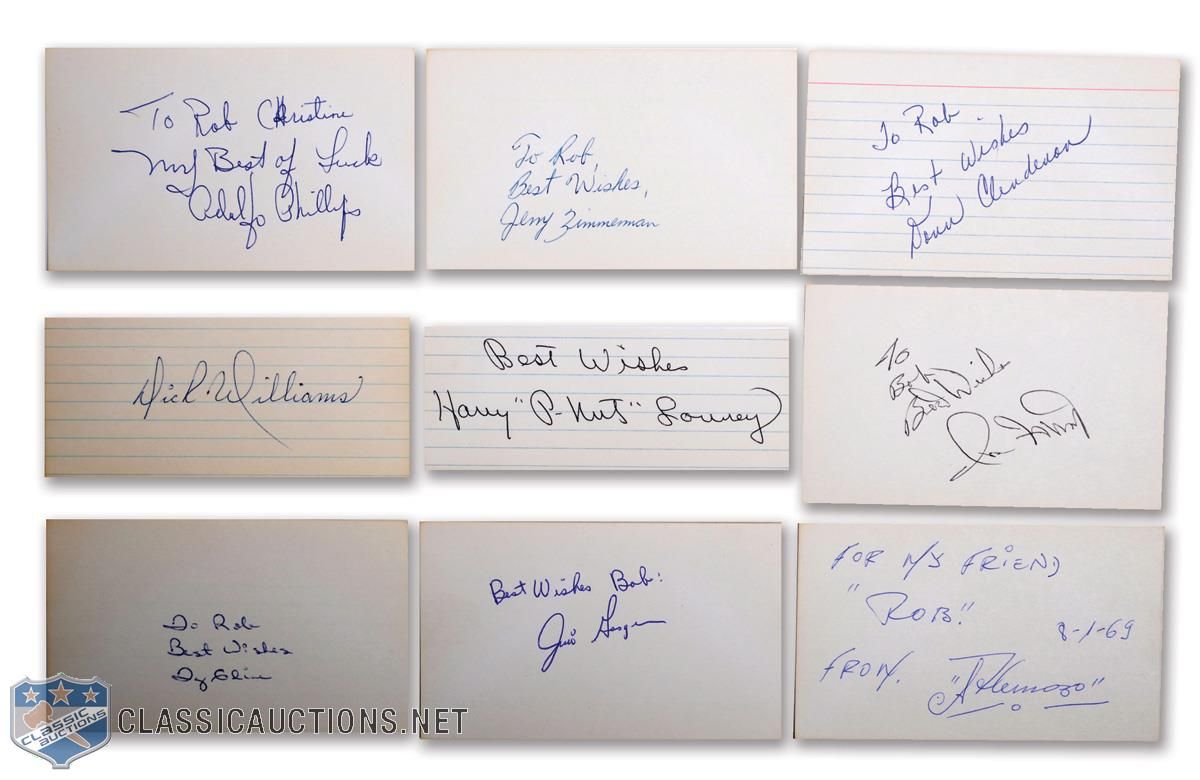 To Rob Christine
My Best of Luck
Adolfo Phillips
To Rob,
Best Wishes,
Jerry Zimmerman
To Rob
Best Wishes
Donn Clendenon
Dick Williams
Best Wishes
Harry "P-Nut" Lowrey
To
Bob
Best Wishes
To Rob
Best Wishes
Ty Cline
Best Wishes Bob:
FOR MY FRIEND
"ROB."
8-1-69
FROM.
CLASSIC
AUCTIONS
CLASSICAUCTIONS.NET